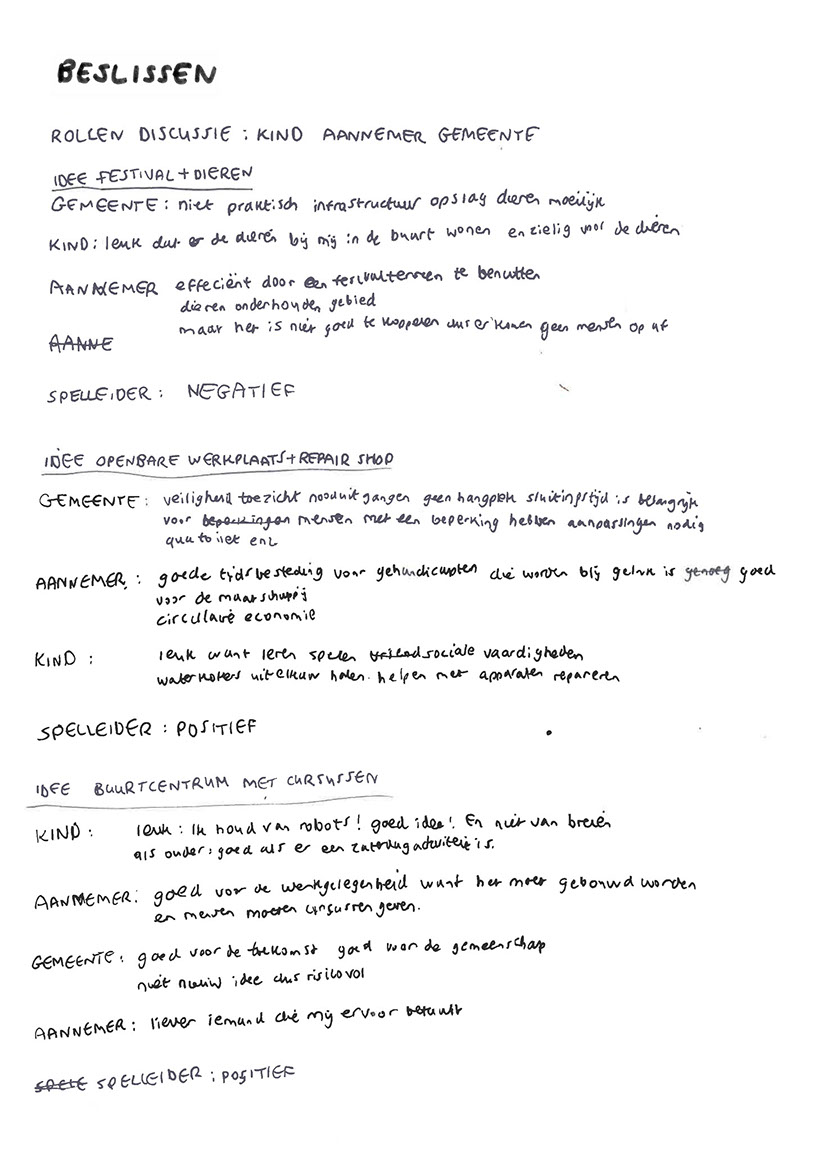 BESLISSEN
ROLLEN DISCUSSIE : KIND AANNEMER GEMEENTE
IDEE FESTIVAL + DIEREN
GEMEENTE : niet praktisch infrastructuur opslag dieren moeilijk
KIND : leuk dat er de dieren bij mij in de buurt wonen en zielig voor de dieren
AANNEMER effeciënt door een festivalterrein te benutten
dieren onderhouden gebied
maar het is niet goed te koppelen dus er komen geen mensen op af
AANNE
SPELLEIDER : NEGATIEF
IDEE OPENBARE WERKPLAATS + REPAIR SHOP
GEMEENTE : veiligheid toezicht nooduitgangen geen hangplek sluitingstijd is belangrijk
voor beperkingen mensen met een beperking hebben aanpassingen nodig
qua toilet enz
AANNEMER : goede tijdsbesteding voor gehandicapten die worden blij geluk is genoeg goed
voor de maatschappij
circulaire economie
KIND : leuk want leren spelen sociale vaardigheden
waterkokers uit elkaar halen. helpen met apparaten repareren
SPELLEIDER : POSITIEF
IDEE BUURTCENTRUM MET CURSUSSEN
KIND : leuk : Ik houd van robots! goed idee! En niet van breien
als ouder : goed als er een zaterdagactiviteit is.
AANNEMER : goed voor de werkgelegenheid want het moet gebouwd worden
en mensen moeten cursussen geven.
GEMEENTE : goed voor de toekomst goed voor de gemeenschap
niet nieuw idee dus risicovol
AANNEMER : liever iemand die mij ervoor betaalt
SPELE SPELLEIDER : POSITIEF